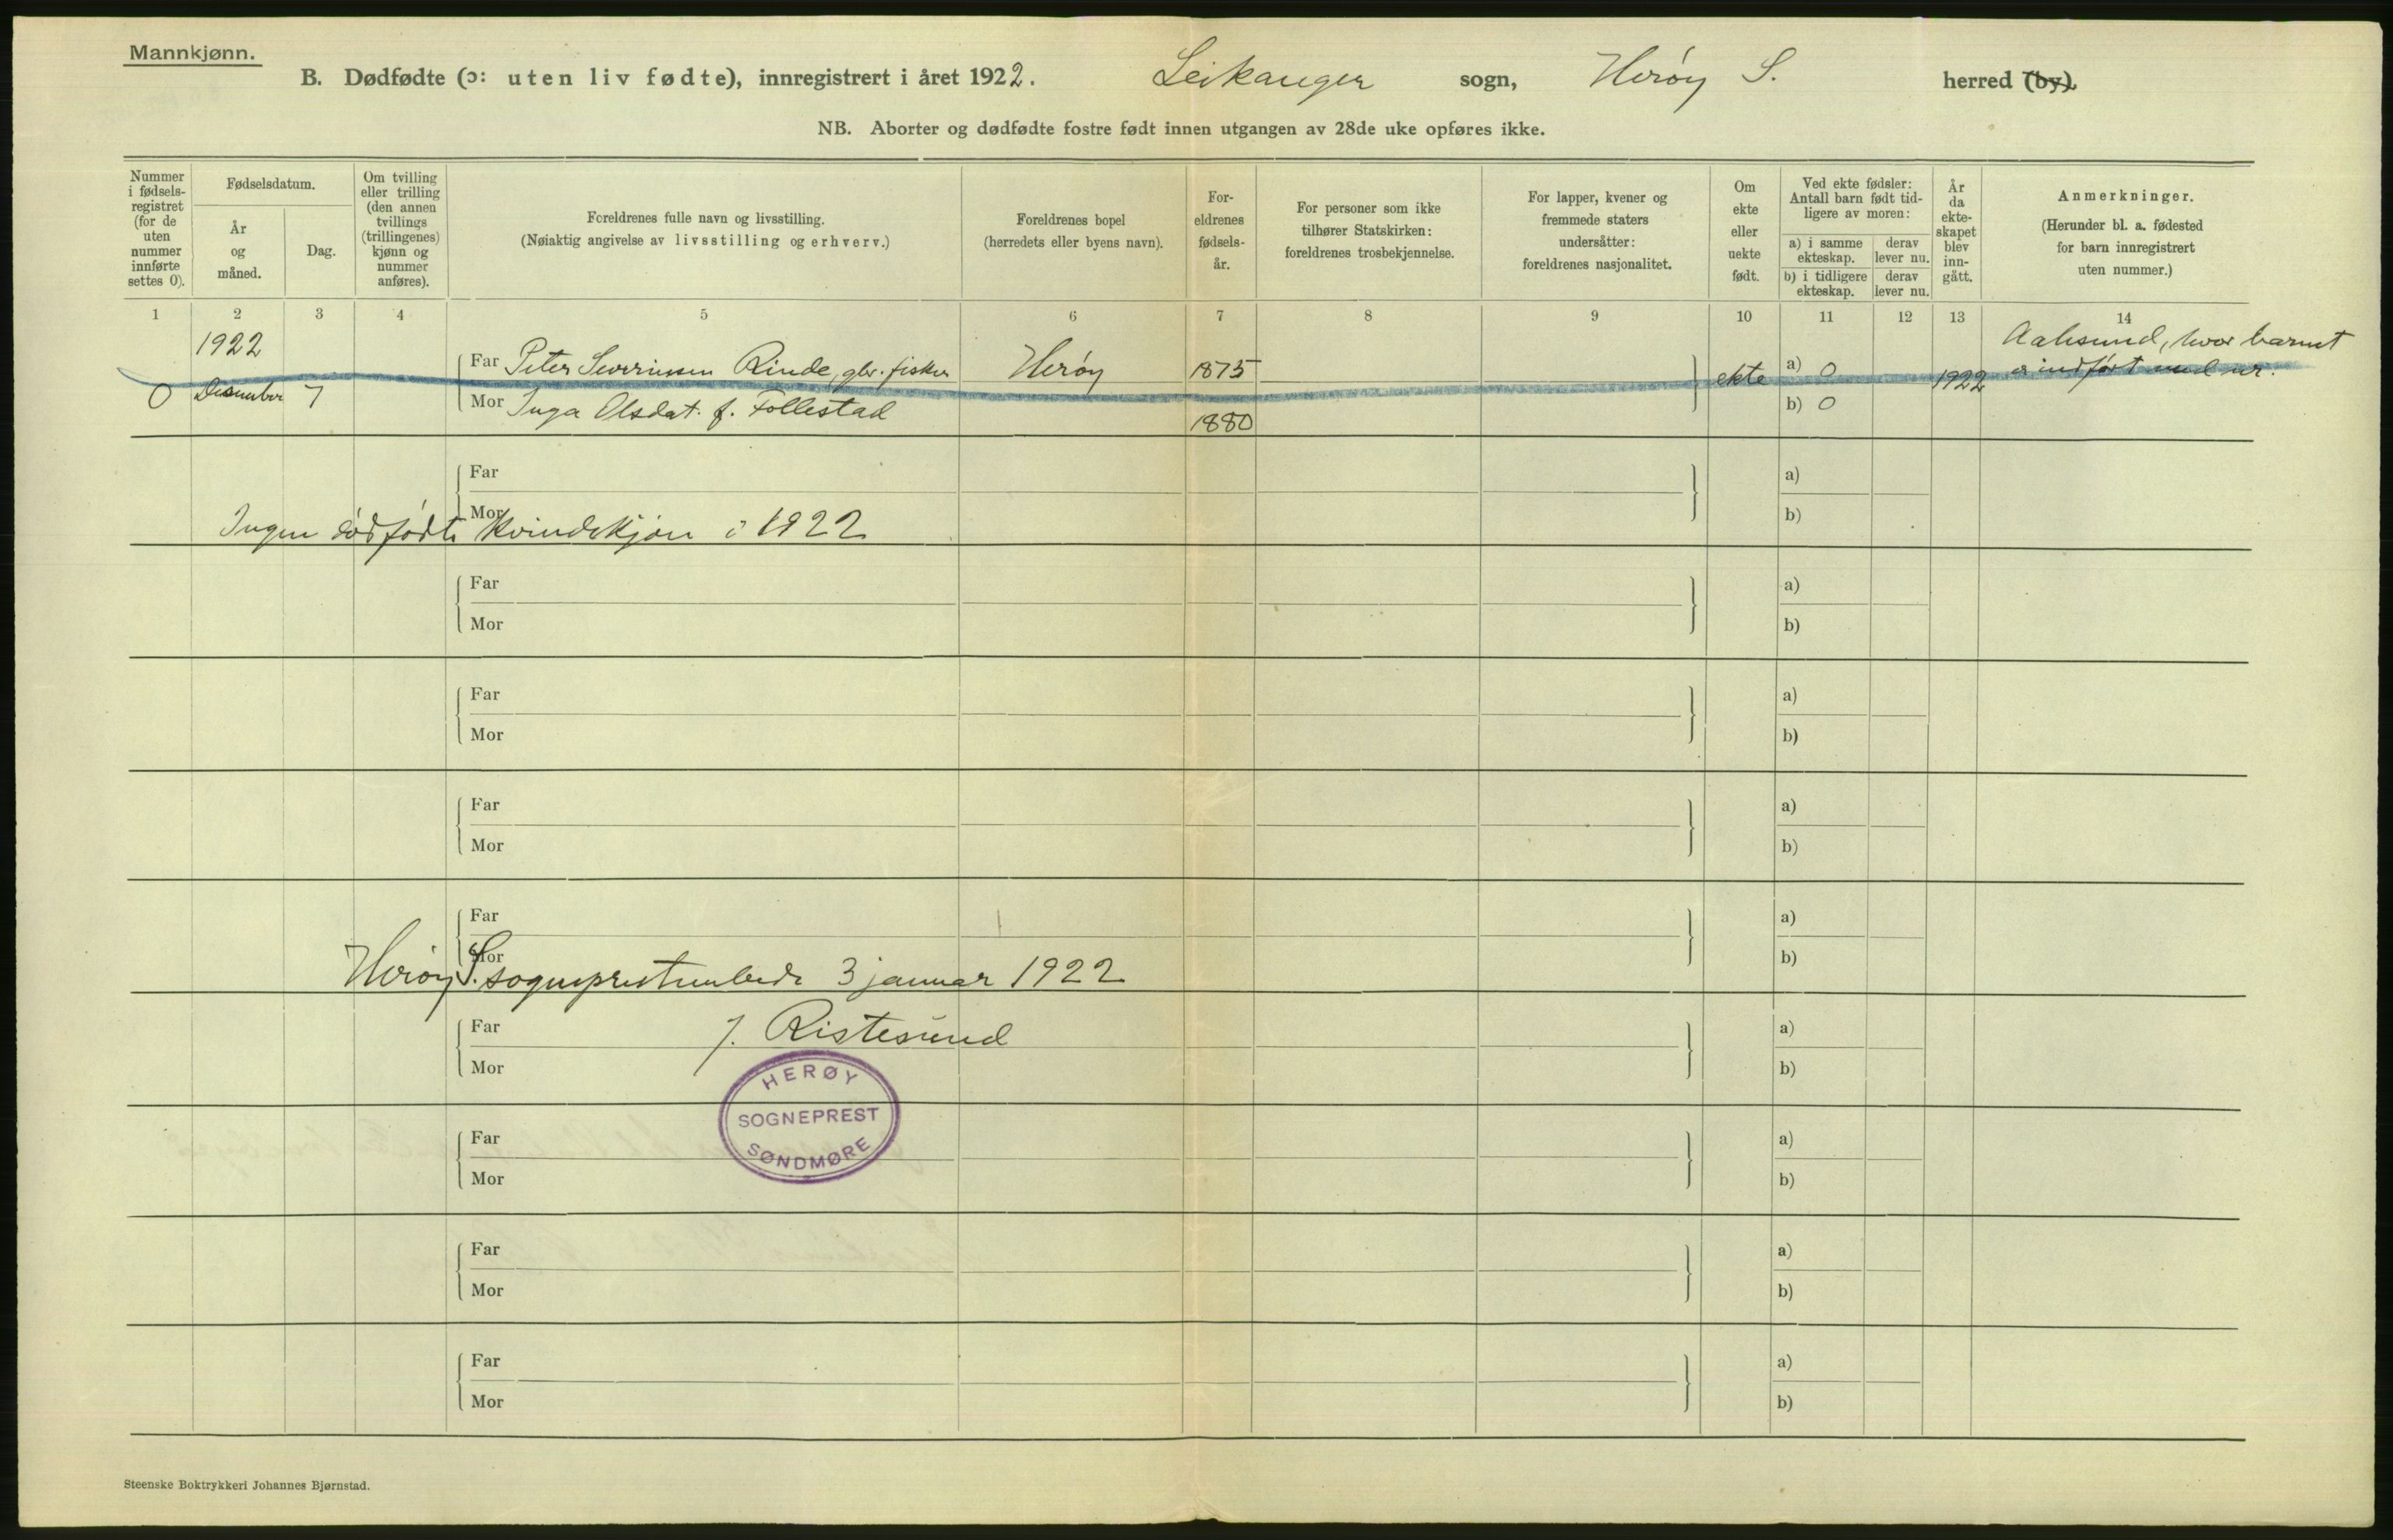 Mannkjønn.
B. Dødfødte (ɔ: uten liv fødte), innregistrert i året 1922. Leikanger sogn, Herøy S. herred (by).
NB. Aborter og dødfødte fostre født innen utgangen av 28de uke opføres ikke.
Nummer i fødsels-registret (for de uten nummer innførte settes 0).
Fødselsdatum.
År og måned.
Dag.
Om tvilling eller trilling (den annen tvillings (trillingenes) kjønn og nummer anføres).
Foreldrenes fulle navn og livsstilling.
(Nøiaktig angivelse av livsstilling og erhverv.)
Foreldrenes bopel
(herredets eller byens navn).
For-eldrenes fødsels-år.
For personer som ikke tilhører Statskirken: foreldrenes trosbekjennelse.
For lapper, kvener og fremmede staters undersåtter: foreldrenes nasjonalitet.
Om ekte eller uekte født.
Ved ekte fødsler: Antall barn født tid-ligere av moren:
a) i samme ekteskap.
derav lever nu.
b) i tidligere ekteskap.
derav lever nu.
År da ekte-skapet blev inn-gått.
Anmerkninger.
(Herunder bl. a. fødested for barn innregistrert uten nummer.)
1 2 3 4 5 6 7 8 9 10 11 12 13 14
1922
Aalesund, hvor barnet
Far Peter Severinsen Rinde, gbr. fisker Herøy 1875 ekte a) 0 1922 er indført med nr.
0 Desember 7 Mor Inga Olsdat. f. Follestad 1880 b) 0
Far a)
Mor b)
Ingen dødfødte kvindekjøn i 1922
Far a)
Mor b)
Far a)
Mor b)
Far a)
Mor b)
Far a)
Mor b)
Herøy S. sogneprestembede 3 januar 1922
Far J. Ristesund a)
Mor b)
HERØY
SOGNEPREST
SØNDMØRE
Far a)
Mor b)
Far a)
Mor b)
Far a)
Mor b)
Steenske Boktrykkeri Johannes Bjørnstad.